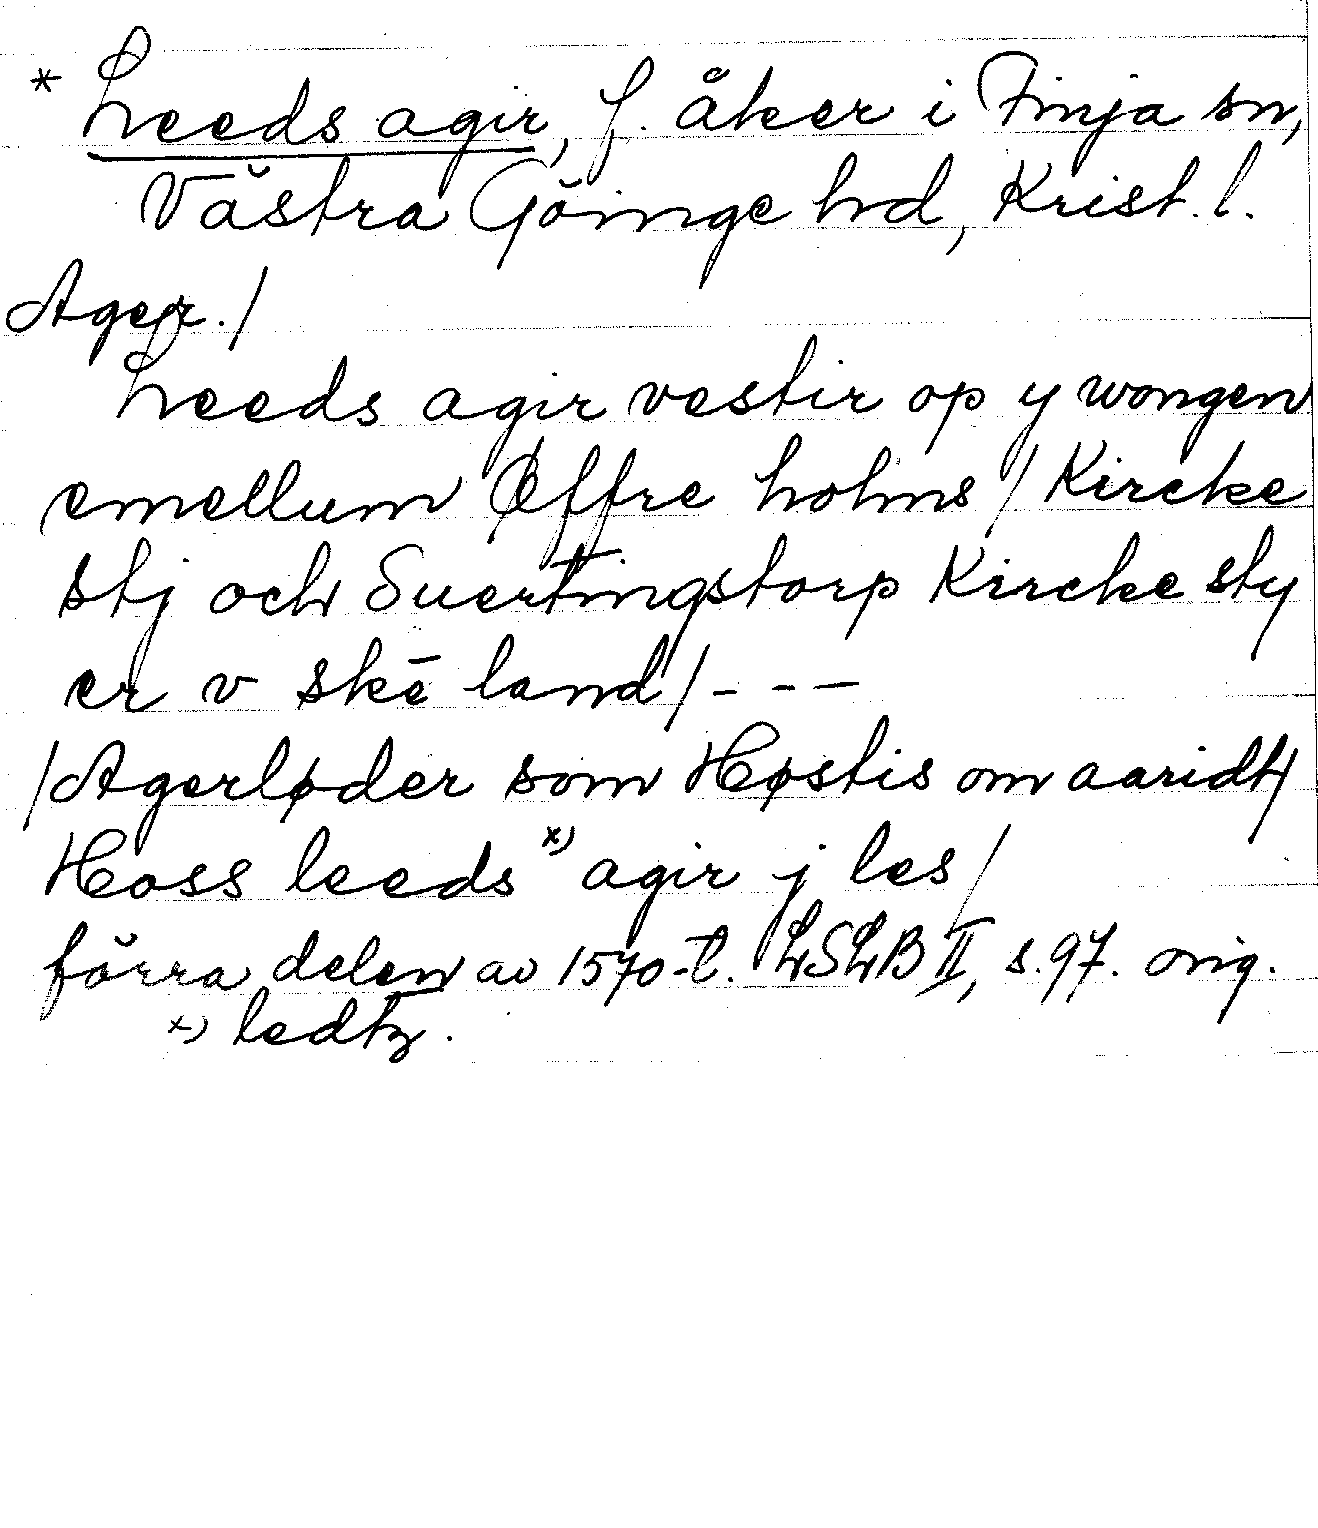 * Leeds agir, f. åker i Finja sn,
Västra Göinge hd, Krist. l.
Ager./
Leeds agir vestir op y wongen
emellum Øffre holms / Kircke
stj och Suertingstorp Kircke sty
er v skē land/ - - -
/Agerløder som Høstis om aaridt/
Hoss leeds x) agir j les/
förra delen av 1570-t. LSLB II, s. 97. orig.
x) ledtz.